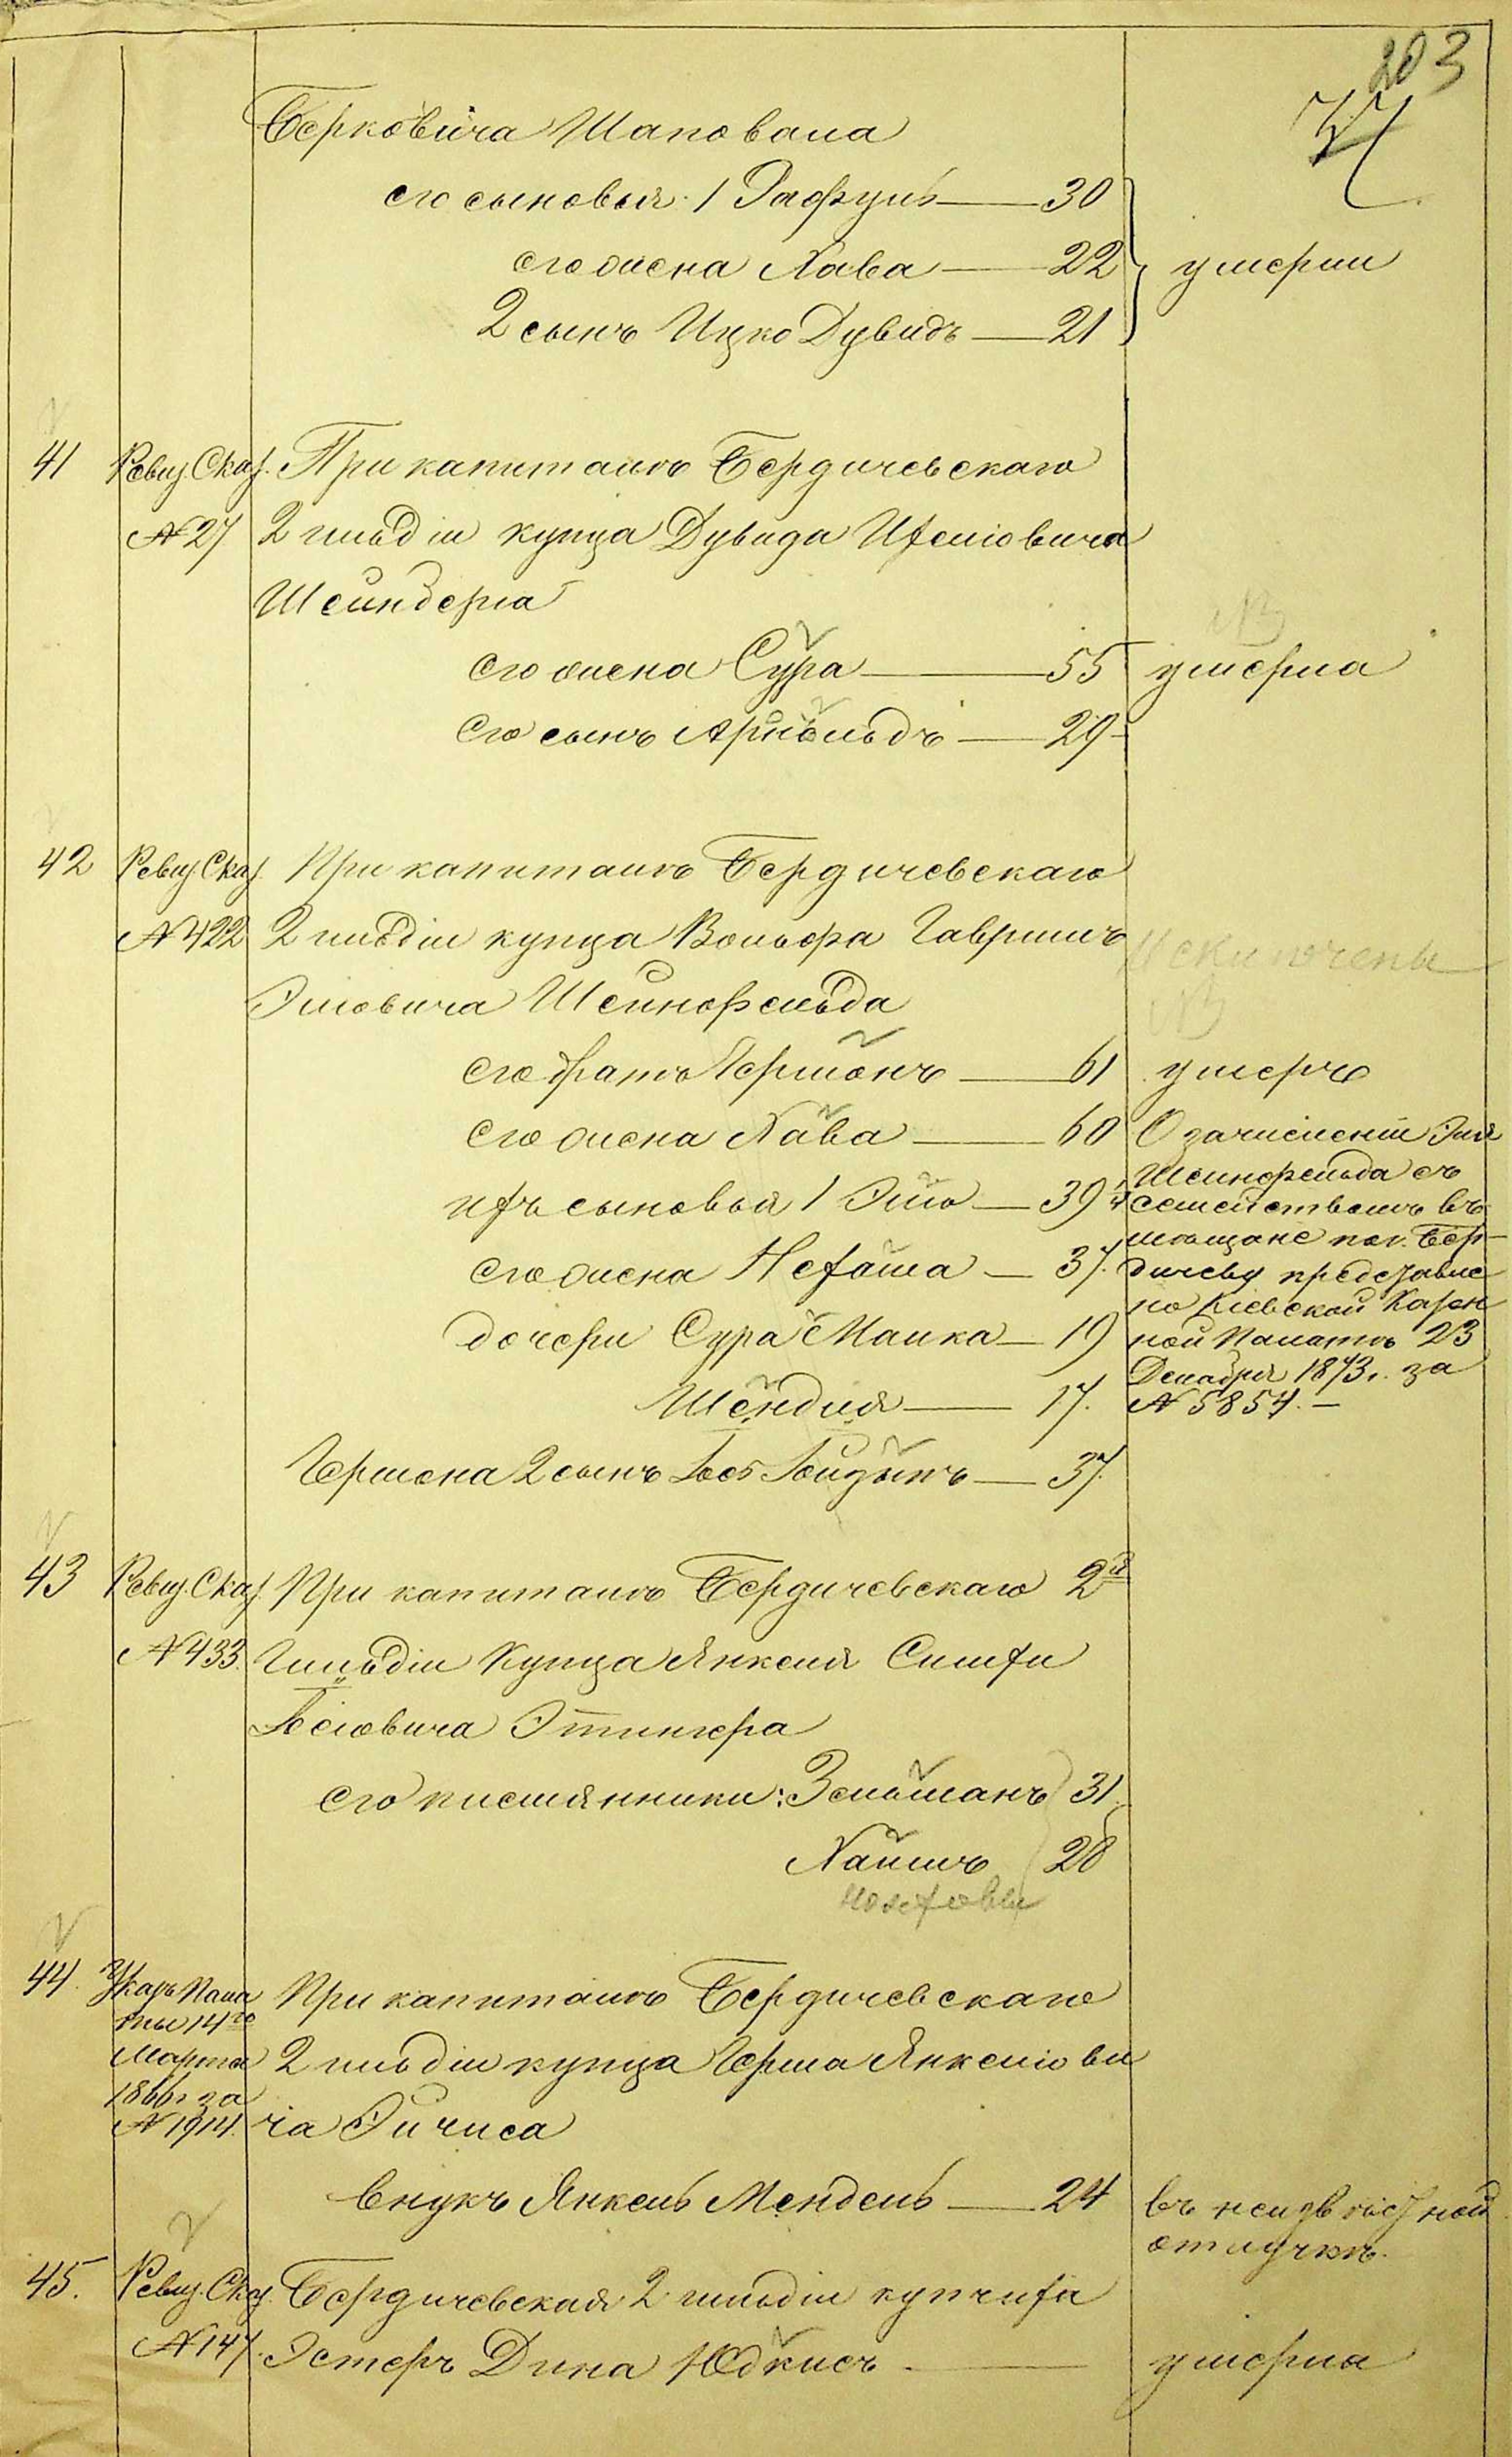 203
Берковича Шаповала
его сыновья: 1 Рафулъ — 30
его жена Хава — 22
умерли
2 сынъ Ицко Дувидъ — 21
41 Ревиз. Сказ. При капиталѣ Бердичевскаго
№ 27 2 гильдіи купца Дувида
Шейнберга
его жена Сура — 55 умерла
его сынъ Арнольдъ — 29
42 Ревиз. Сказ. При капиталѣ Бердичевскаго
№ 422 2 гильдіи купца Вольфа Гаврилъ
Исключены
Эліовича Шейнфельда
его братъ Гершонъ — 61 умеръ
его жена Хава — 60 О зачисленіи Эля
ихъ сыновья 1 Эліо — 39 Шейнфельда съ
семействомъ въ
его жена Нехама — 37. мѣщане по г. Бер-
дичеву представле
дочери Сура Малка — 19 но Кіевской Казен
ной Палатѣ 23
Шендля — 17. Декабря 1873 г. за
№ 5854. —
Гершона 2 сынъ Іосъ Зейдыкъ — 37.
43 Ревиз. Сказ. При капиталѣ Бердичевскаго 2й
№ 433. Гильдіи Купца Янкеля Симхи
Іосіовича Этингера
его племянники: Зельманъ 31
Хаимъ 28
44. Указъ Пала При капиталѣ Бердичевскаго
ты 14го
Марта 2 гильдіи купца Герша Янкеліови
1866 г за
№ 1914. ча Эйчиса
внукъ Янкель Мендель — 24 въ неизвѣстной
отлучкѣ.
45. Ревиз. Сказ. Бердичевская 2 гильдіи купчиха
№ 147. Эстеръ Дина Юдкисъ — умерла